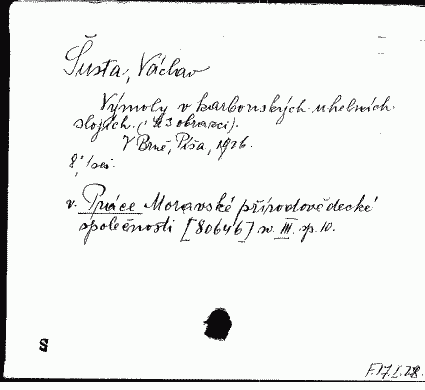 Šusta, Václav
Výmoly v karbonských uhelných
slojích. (S 3 obrazci).
V Brně, Píša, 1926.
8°, 1 seš.
v. Práce Moravské přírodovědecké
společnosti [80646] sv. III. sp. 10.
S
F.17.I.28.